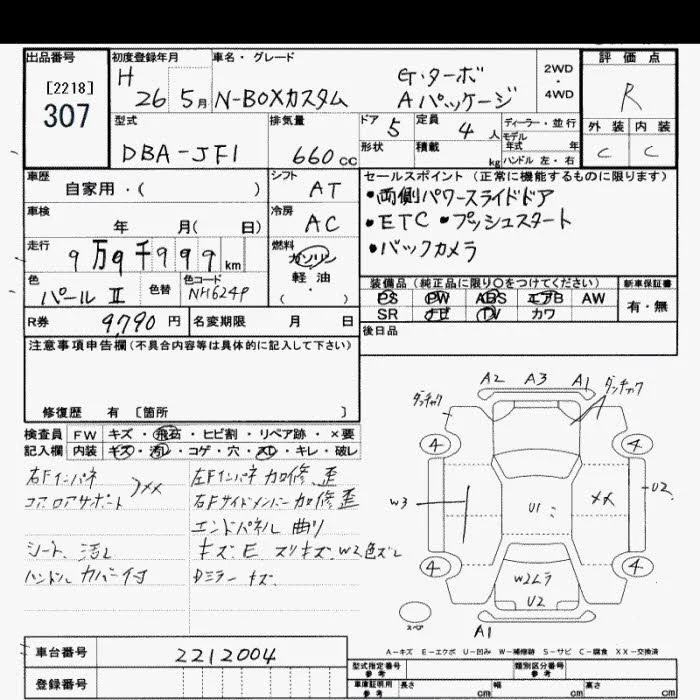 出品番号
[2218]
307
初度登録年月
H
26 5月
車名・グレード
N-BOXカスタム
G・ターボ
Aパッケージ
2WD
・
4WD
評価点
R
外装 内装
C C
型式
DBA-JF1
排気量
660cc
ドア 5
形状
定員 4人
積載 kg
ディーラー・並行
モデル
年式 年
ハンドル 左・右
車歴
自家用・( )
シフト
AT
セールスポイント (正常に機能するものに限ります)
・両側パワースライドドア
・ETC ・プッシュスタート
・バックカメラ
車検
年 月( 日)
冷房
AC
走行
9万9千999km
燃料
ガソリン
軽油
( )
色
パールⅡ
色替
色コード
NH624P
装備品 (純正品に限り○をつけてください)
PS PW ABS エアB AW
SR ナビ TV カワ
新車保証書
有・無
R券 9,790円
名変期限 月 日
後日品
注意事項申告欄(不具合内容等は具体的に記入して下さい)
修復歴 有 [箇所 ]
検査員 FW キズ・飛石・ヒビ割・リペア跡・×要
記入欄 内装 キズ・汚レ・コゲ・穴・スレ・キレ・破レ
右Fインパネ
コアロアサポート
〉××
シート、汚レ
ハンドル カバー付
左Fインパネ 加修、歪
右Fサイドメンバー加修歪
エンドパネル 曲り
キズ・E スリキズ・W2色ズレ
Dミラー キズ
A2 A3 A1
ダッチャク
ダッチャク
4
4
W3
U1
××
U2
4
4
W2ムラ
U2
スペア
A1
A-キズ E-エクボ U-凹み W-補修跡 S-サビ C-腐食 XX-交換済
車台番号 2212004
登録番号
型式指定番号
参考
類別区分番号
参考
車庫証明用
参考
長さ cm
幅 cm
高さ cm